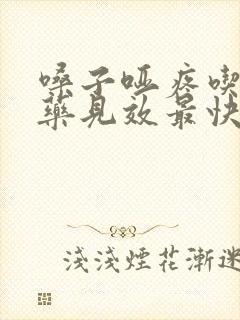 嗓子啞疼喫
藥見效最快
淺淺煙花漸迷